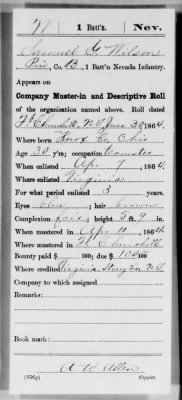 W 1 Batt'n. Nev.
Samuel G. Wilson
Priv, Co. B, 1 Batt'n Nevada Infantry.
Appears on
Company Muster-in and Descriptive Roll
of the organization named above. Roll dated
Ft Churchill, N.T. June 30, 1864.
Where born Knox Co, Ohio
Age 30 y'rs; occupation Teamster
When enlisted Apr 7, 1864.
Where enlisted Virginia
For what period enlisted 3 years.
Eyes blue; hair brown
Complexion fair; height 5 ft. 9 in.
When mustered in Apr 10, 1864.
Where mustered in Ft Churchill
Bounty paid $ 100; due $ 100
Where credited Virginia, Storey Co. N.T.
Company to which assigned
Remarks:
Book mark:
A W Allen
(356g) Copyist.